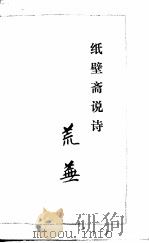 纸壁斋说诗
荒芜